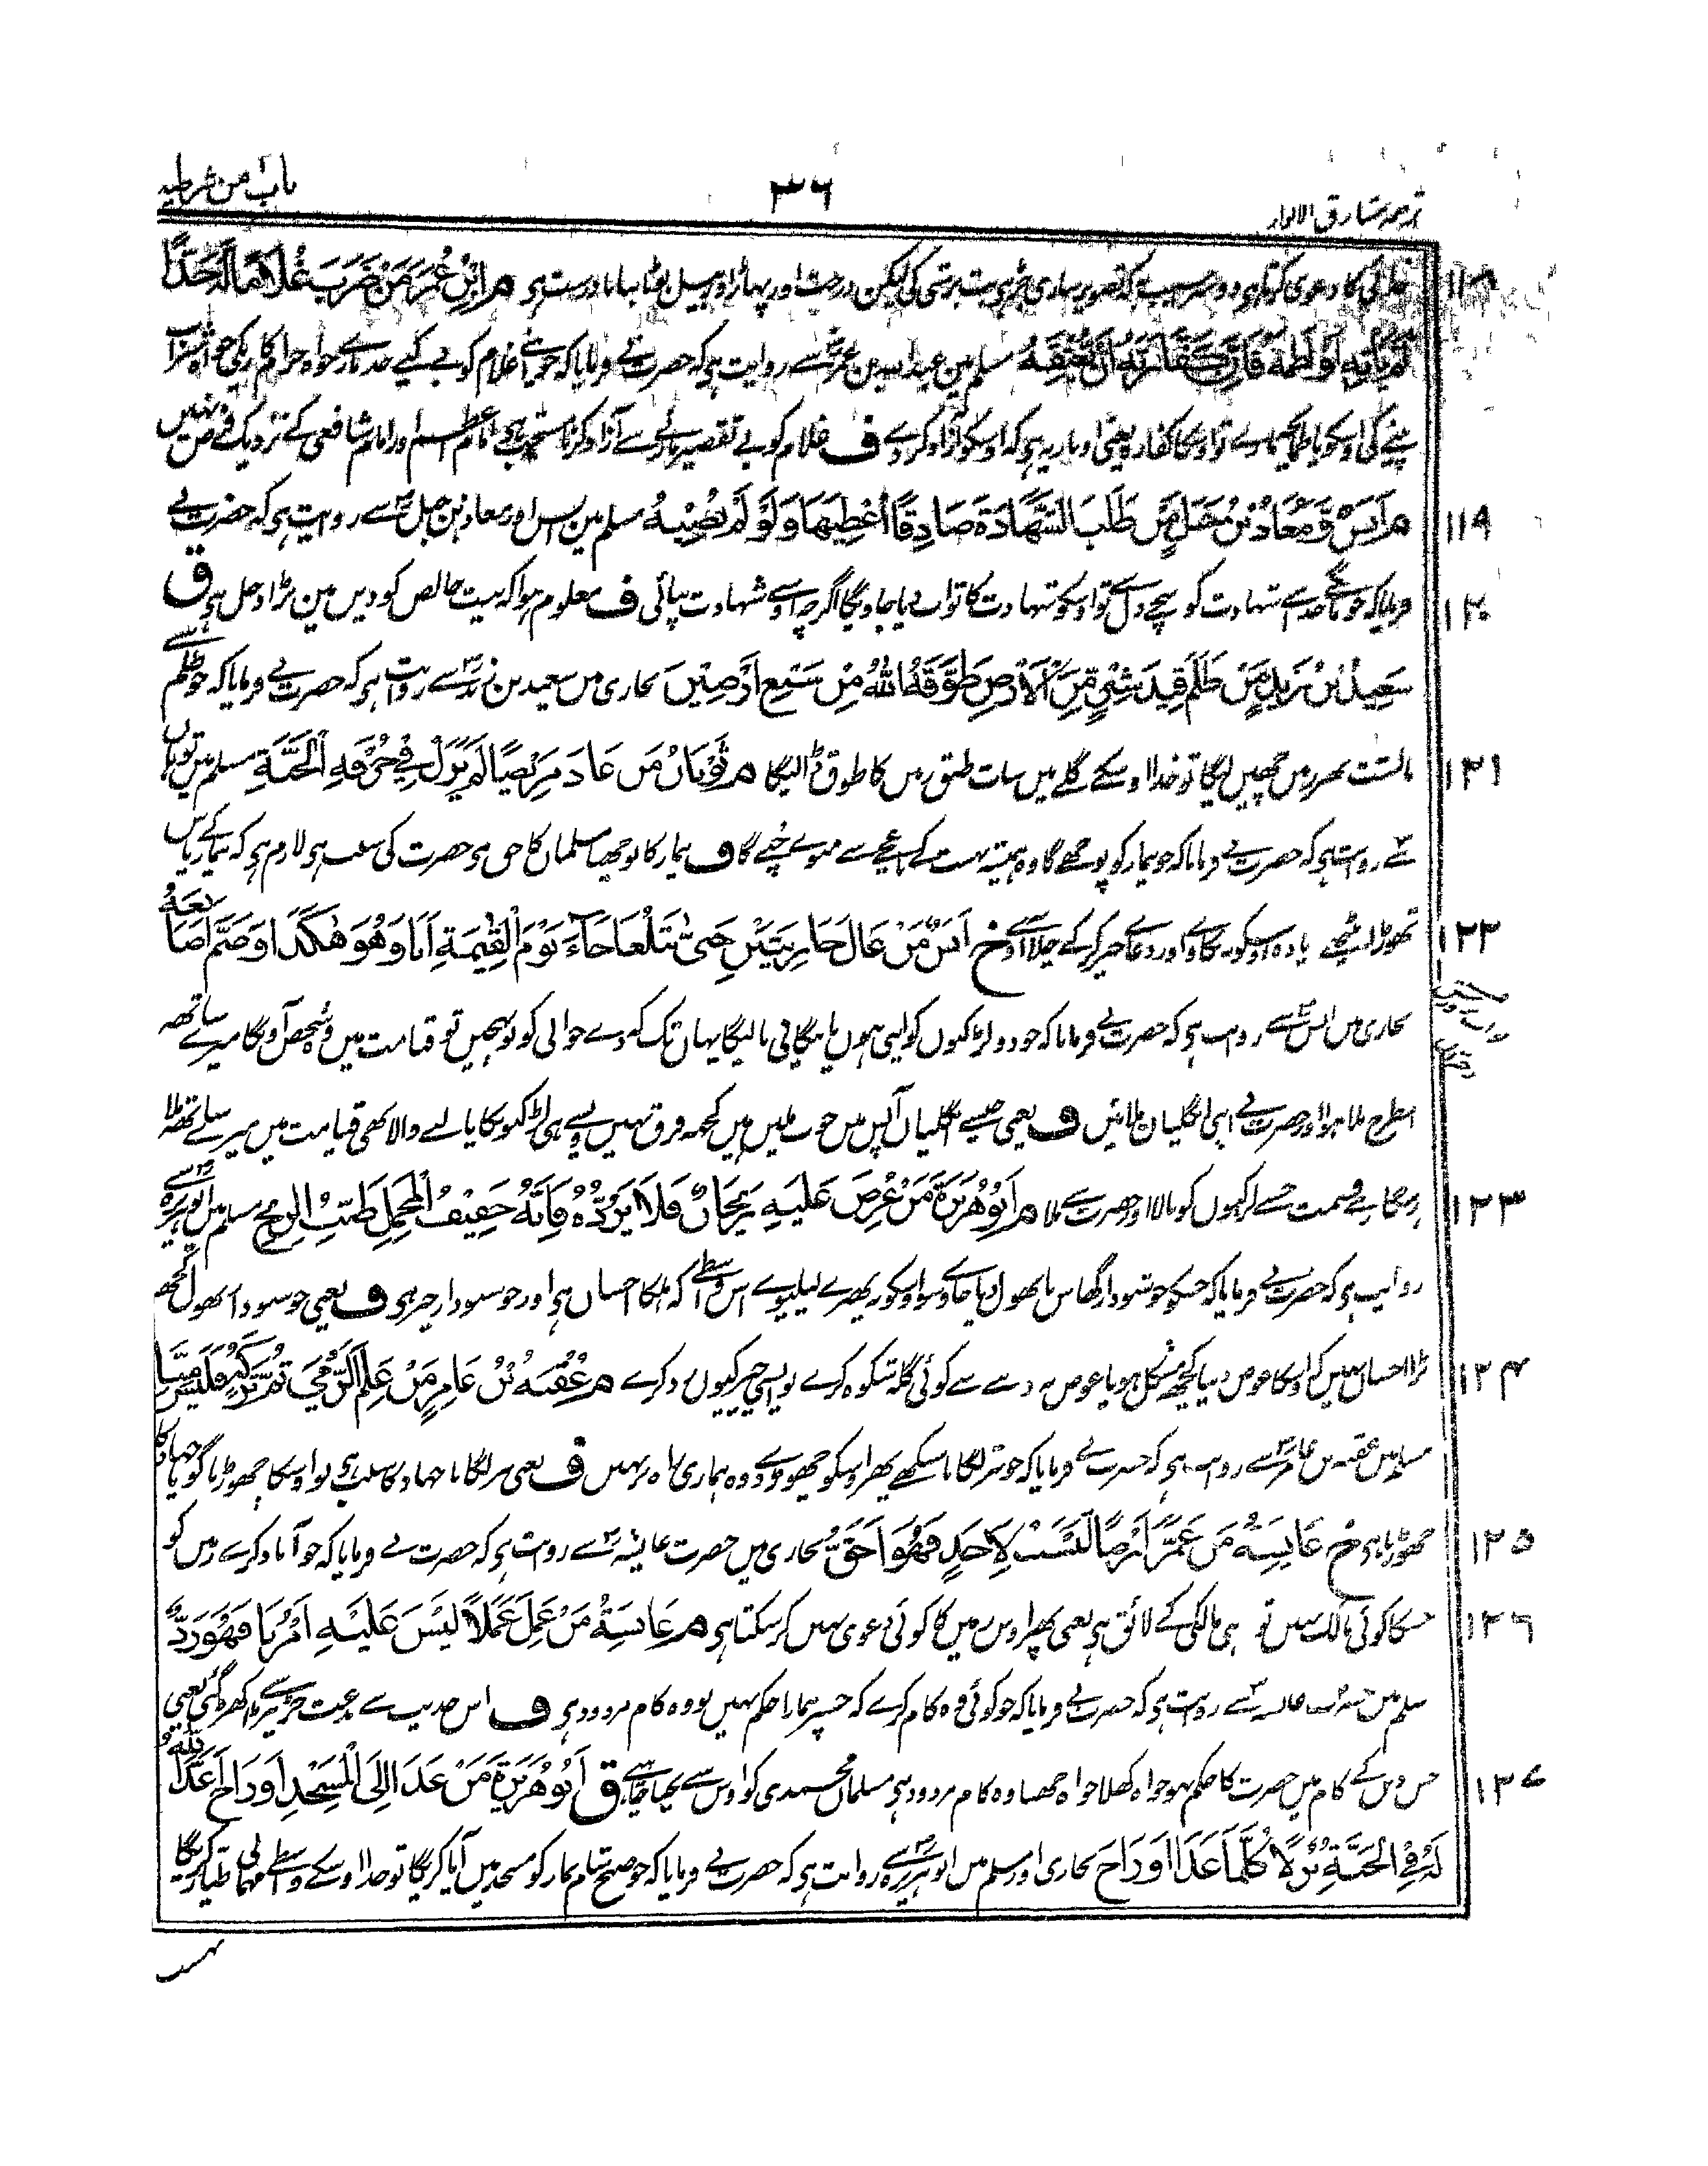 باب من شرطیہ
۳۶
ترجمہ مشارق الانوار
۱۱۸
خدائی کا دعوی کرتا ہی دوسرے سبب کہ تصویر ساری جڑ ہی بت پرستی کی لیکن درخت اور پہاڑ اور بیل بوٹا بنانا درست ہی م ابْنُ عُمَرَ مَنْ ضَرَبَ غُلَامًا لَهُ حَدًّا
لَمْ يَأْتِهِ أَوْ لَطَمَهُ فَإِنَّ كَفَّارَتَهُ أَنْ يُعْتِقَهُ مسلم میں عبد اللہ بن عمرؓ سے روایت ہی کہ حضرت نے فرمایا کہ جو اپنے غلام کو بے کیے حد مارے خواہ حرامکاری کی خواہ شراب
پینے کی اوسکو یا طمانچہ مارے تو اوسکا کفارہ یعنی اوتار یہ ہی کہ اوسکو آزاد کر دے ف غلام کو بے تقصیر مارنے سے آزاد کرنا مستحب ہی امام اعظم اور امام شافعی کے نزدیک فرض نہیں
۱۱۹
م اَنَسٌ وَّ مُعَاذُ بْنُ جَبَلٍ مَنْ طَلَبَ الشَّهَادَةَ صَادِقًا أُعْطِيَهَا وَلَوْ لَمْ تُصِبْهُ مسلم میں انس اور معاذ بن جبلؓ سے روایت ہی کہ حضرت نے
۱۲۰
فرمایا کہ جو مانگے خدا سے شہادت کو سچے دل سے تو اوسکو شہادت کا ثواب دیا جاویگا اگرچہ اوسنے شہادت نپائی ف معلوم ہوا کہ نیت خالص کو دین میں بڑا دخل ہی ق
سَعِيدُ بْنُ زَيْدٍ مَنْ ظَلَمَ قِيدَ شِبْرٍ مِّنَ الْأَرْضِ طَوَّقَهُ اللّٰهُ مِنْ سَبْعِ أَرْضِيْنَ بخاری میں سعید بن زیدؓ سے روایت ہی کہ حضرت نے فرمایا کہ جو ظلم سے
۱۲۱
بالشت بھر زمین چھین لیگا تو خدا اوسکے گلے میں سات طبق زمین کا طوق ڈالیگا م ثَوْبَانُ مَنْ عَادَ مَرِيْضًا لَمْ يَزَلْ فِي خُرْفَةِ الْجَنَّةِ مسلم میں ثوبان
سے روایت ہی کہ حضرت نے فرمایا کہ جو بیمار کو پوچھے گا وہ ہمیشہ بہشت کے باغیچے سے میوے چنے گا ف بیمار کا پوچھنا مسلمان کا حق ہی حضرت کی سنت ہی لازم ہی کہ بیمار کے پاس
۱۲۲
تھوڑا بیٹھے زیادہ اوسکو نہ تھکاوے اور دعاے خیر کر کے چلا آوے خ اَنَسٌ مَنْ عَالَ جَارِيَتَيْنِ حَتّٰى تَبْلُغَا جَاءَ يَوْمَ الْقِيٰمَةِ اَنَا وَهُوَ هٰكَذَا وَضَمَّ اَصَابِعَهُ
بخاری میں انسؓ سے روایت ہی کہ حضرت نے فرمایا کہ جو دو لڑکیوں کو اپنی ہوں یا بیگانی پالیگا یہاں تک کہ وے جوانی کو پہنچیں تو قیامت میں وہ شخص آویگا میرے ساتھ
اسطرح ملا ہوا اور حضرت نے اپنی انگلیاں ملائیں ف یعنی جیسے انگلیاں آپس میں خوب ملیں ہیں کچھ فرق نہیں ویسے ہی لڑکیونکا پالنے والا بھی قیامت میں میرے ساتھ ملا
۱۲۳
رہیگا زہے قسمت جسنے لڑکیوں کو پالا اور حضرت سے ملا م اَبُوْ هُرَيْرَةَ مَنْ عُرِضَ عَلَيْهِ رَيْحَانٌ فَلَا يَرُدُّهُ فَاِنَّهُ خَفِيْفُ الْمَحْمِلِ طَيِّبُ الرِّيْحِ مسلم میں ابوہریرہؓ سے
روایت ہی کہ حضرت نے فرمایا کہ جسکو خوشبودار گھاس یا پھول دیا جاوے سو اوسکو نہ پھیرے لیلیوے اس واسطے کہ ہلکا احسان ہی اور خوشبودار چیز ہی ف یعنی خوشبودار پھول کچھ
۱۲۴
بڑا احسان نہیں کہ اوسکا عوض دینا کچھ مشکل ہو یا عوض نہ دینے سے کوئی گلہ شکوہ کرے تو ایسی چیز کیوں رد کرے م عُقْبَةُ بْنُ عَامِرٍ مَنْ عَلِمَ الرَّمْيَ ثُمَّ تَرَكَهُ فَلَيْسَ مِنَّا
مسلم میں عقبہ بن عامرؓ سے روایت ہی کہ حضرت نے فرمایا کہ جو تیر لگانا سیکھے پھر اوسکو چھوڑ دے وہ ہماری راہ پر نہیں ف یعنی تیر لگانا جہاد کا سبب ہی تو اوسکا چھوڑنا گویا جہاد کا
۱۲۵
چھوڑنا ہی خ عَايِشَةُ مَنْ عَمَّرَ اَرْضًا لَيْسَتْ لِاَحَدٍ فَهُوَ اَحَقُّ بخاری میں حضرت عایشہؓ سے روایت ہی کہ حضرت نے فرمایا کہ جو آباد کرے زمین کو
۱۲۶
جسکا کوئی مالک نہیں تو وہی مالکی کے لائق ہی یعنی پھر اوس زمین کا کوئی دعوی نہیں کر سکتا ہی م عَايِشَةُ مَنْ عَمِلَ عَمَلًا لَيْسَ عَلَيْهِ اَمْرُنَا فَهُوَ رَدٌّ
مسلم میں حضرت عایشہؓ سے روایت ہی کہ حضرت نے فرمایا کہ جو کوئی وہ کام کرے کہ جسپر ہمارا حکم نہیں تو وہ کام مردود ہی ف اس حدیث سے بدعت جڑ پیڑ سے اکھڑ گئی یعنی
۱۲۷
جس دین کے کام میں حضرت کا حکم نہو خواہ کھلا خواہ چھپا وہ کام مردود ہی مسلمان محمدی کو اوس سے بچنا چاہیے ق اَبُوْ هُرَيْرَةَ مَنْ غَدَا اِلَى الْمَسْجِدِ اَوْ رَاحَ اَعَدَّ اللّٰهُ
لَهُ فِي الْجَنَّةِ نُزُلًا كُلَّمَا غَدَا اَوْ رَاحَ بخاری اور مسلم میں ابوہریرہؓ سے روایت ہی کہ حضرت نے فرمایا کہ جو صبح شام نماز کو مسجد میں آیا کریگا تو خدا اوسکے واسطے مہمانی طیار کریگا